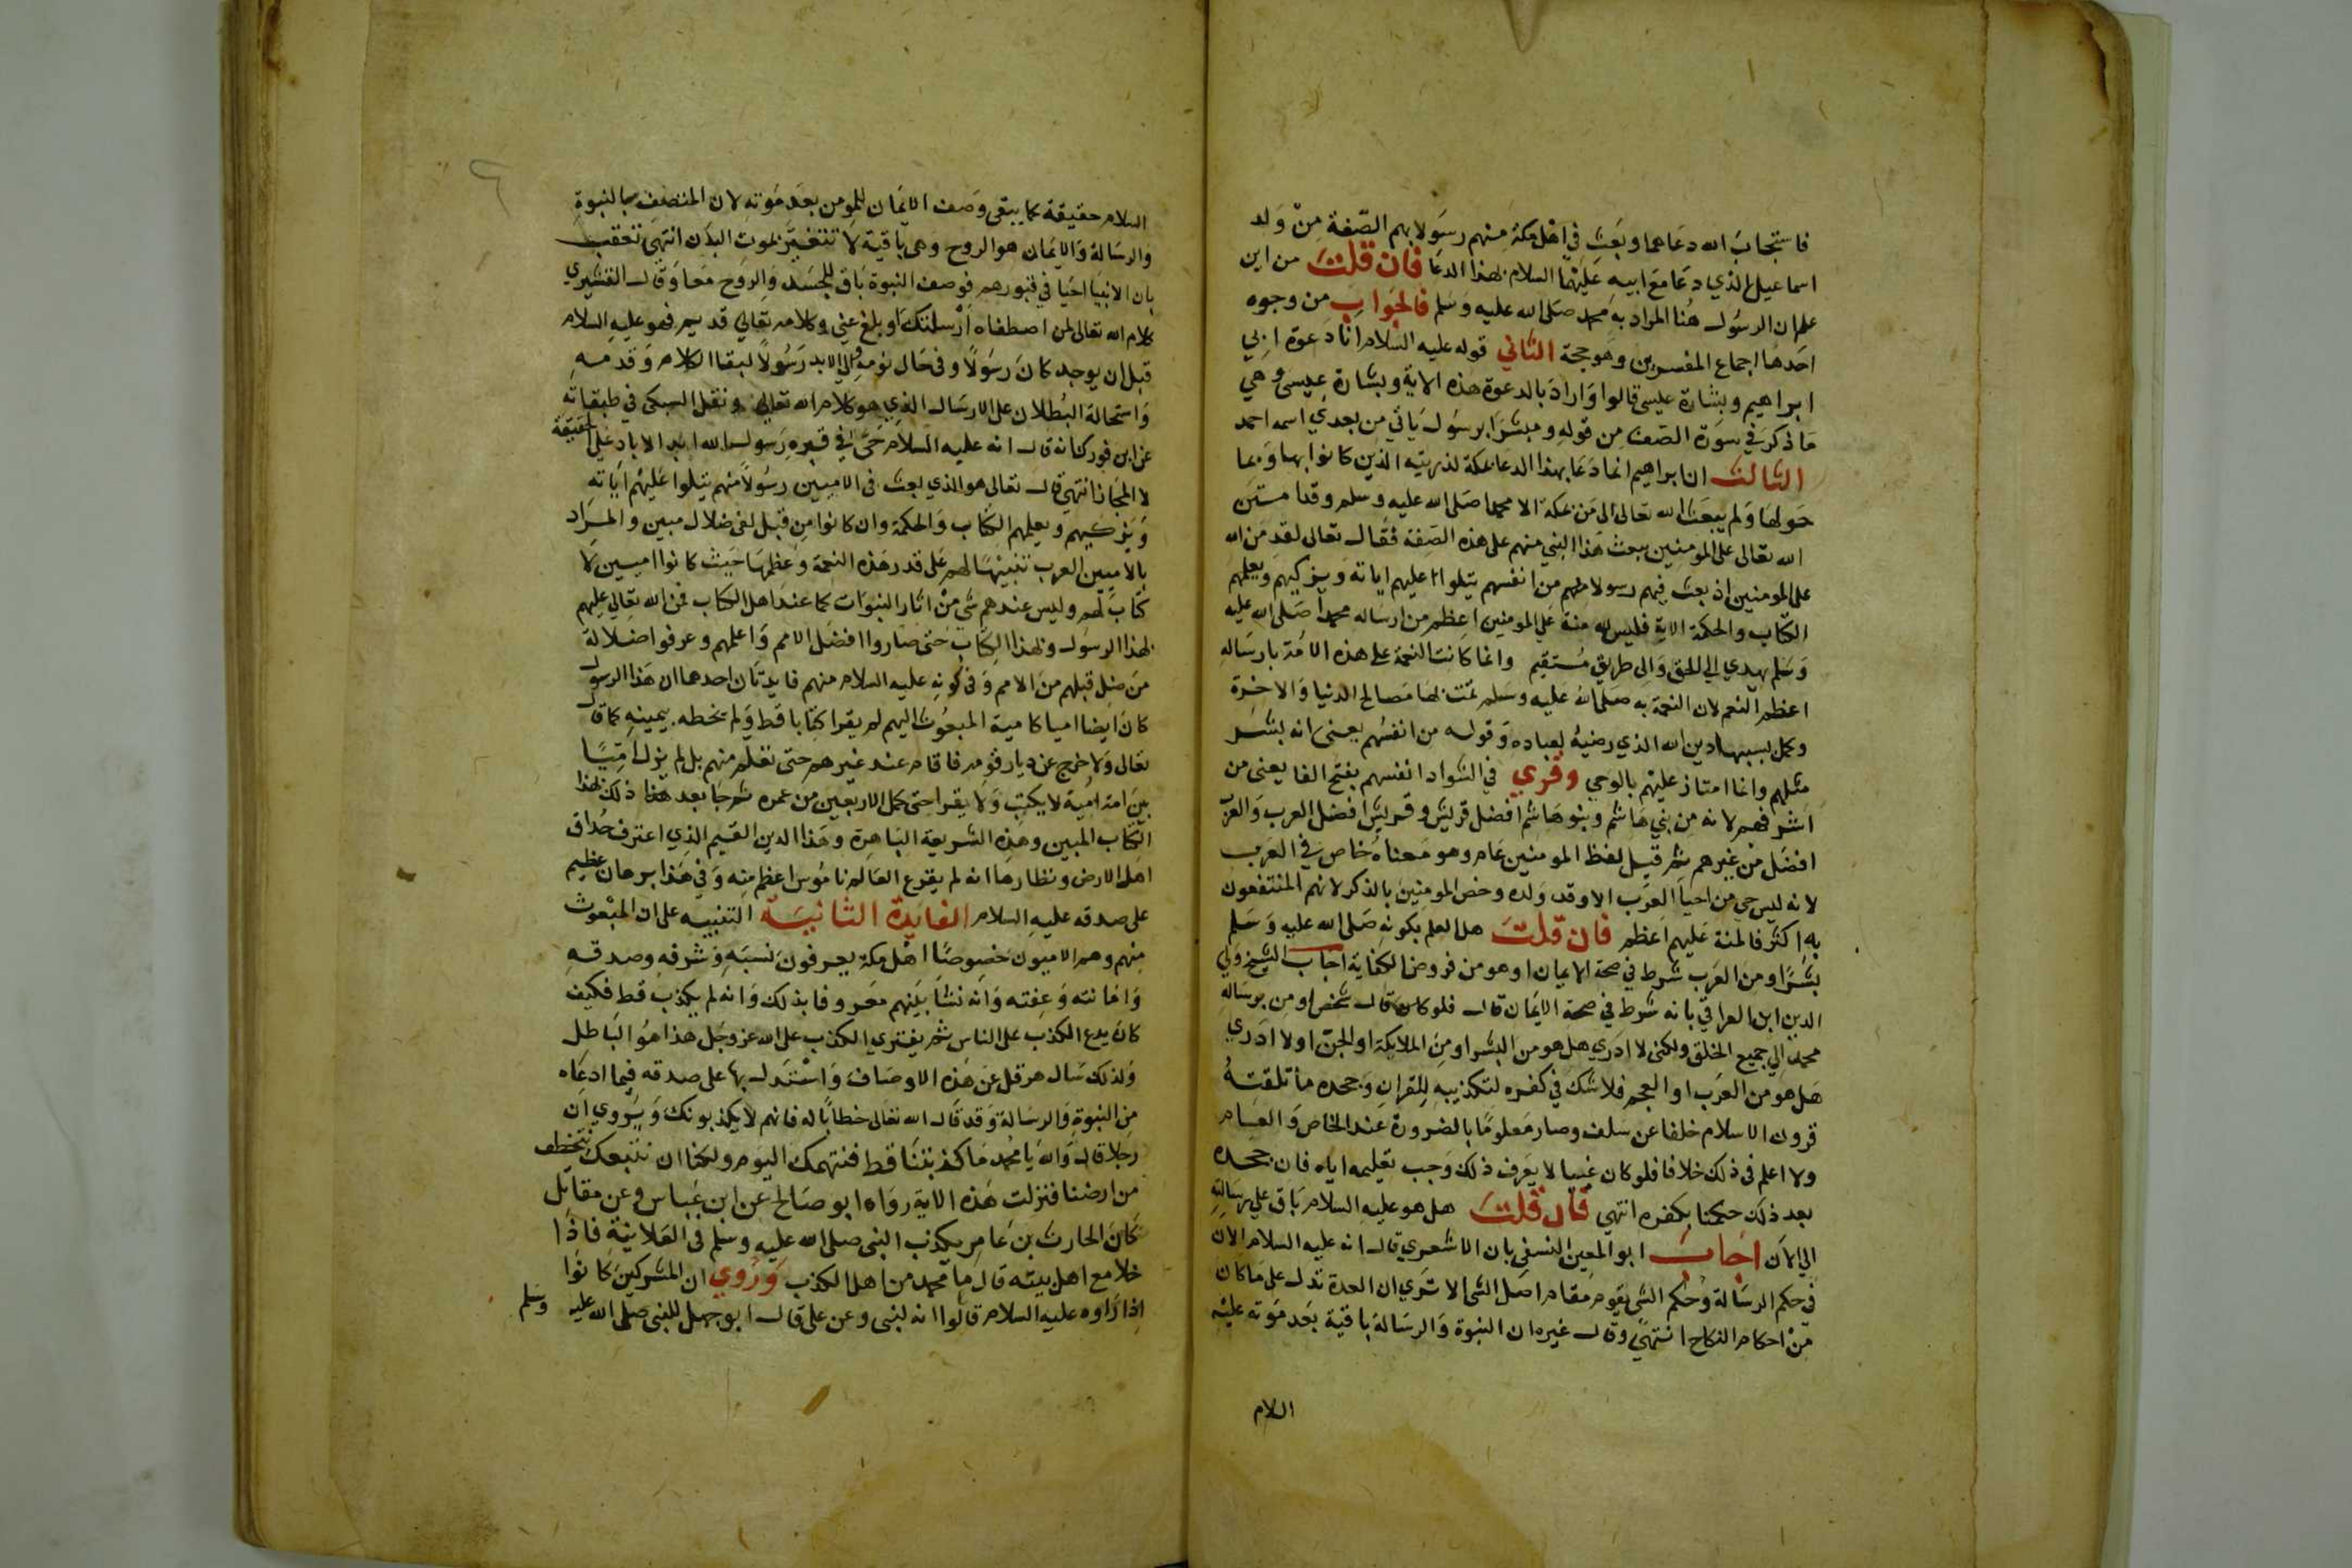 فاستجاب الله دعاهما وبعث في اهل مكة منهم رسولا بهم الصفة من ولد
اسماعيل الذي دعا مع ابيه عليهما السلام بهذا الدعا فان قلت من اين
علم ان الرسول هنا المراد به محمد صلى الله عليه وسلم فالجواب من وجوه
احدها اجماع المفسرين وهو حجة الثاني قوله عليه السلام انا دعوة ابي
ابراهيم وبشارة عيسى قالوا واراد بالدعوة هذه الاية وبشارة عيسى وهي
ما ذكر في سورة الصف من قوله ومبشرا برسول ياتي من بعدي اسمه احمد
الثالث ان ابراهيم انما دعا بهذا الدعا بمكة لذريته الذين كانوا بها وبما
حولها ولم يبعث الله تعالى الى من بمكة الا محمدا صلى الله عليه وسلم وقد امتن
الله تعالى على المومنين ببعث هذا النبي منهم على هذه الصفة فقال تعالى لقد من الله
على المومنين اذ بعث فيهم رسولا منهم من انفسهم يتلوا عليهم اياته ويزكيهم ويعلمهم
الكتاب والحكمة الاية فليس لله منة على المومنين اعظم من ارساله محمدا صلى الله عليه
وسلم يهدي الي الحق والى طريق مستقيم وانما كانت النعمة على هذه الامة بارساله
اعظم النعم لان النعمة به صلى الله عليه وسلم تمت بها مصالح الدنيا والاخرة
وكمل بسببها دين الله الذي رضيه لعباده وقوله من انفسهم يعني انه بشر
مثلهم وانما امتاز عليهم بالوحي وقري في الشواد انفسهم بفتح الفا يعني من
اشرفهم لانه من بني هاشم وبنو هاشم افضل قريش وقريش افضل العرب والعرب
افضل من غيرهم ثم قيل لفظ المومنين عام وهو معناه خاص في العرب
لانه ليس حي من احيا العرب الا وقد ولده وخص المومنين بالذكر لانهم المنتفعون
به اكثر فالمنة عليهم اعظم فان قلت هل العلم بكونه صلى الله عليه وسلم
بشرا ومن العرب شرط في صحة الايمان او هو من فروض الكفاية اجاب الشيخ ولي
الدين ابن العراقي بانه شرط في صحة الايمان قال فلو قال شخص اومن برسالة
محمد الي جميع الخلق ولكني لا ادري هل هو من البشر او من الملايكة او الجن او لا ادري
هل هو من العرب او العجم فلا شك في كفره لتكذيبه للقران وجحده ما تلقته
قرون الاسلام خلفا عن سلف وصار معلوما بالضرورة عند الخاص والعام
ولا اعلم في ذلك خلافا فلو كان غبيا لا يعرف ذلك وجب تعليمه اياه فان جحده
بعد ذلك حكمنا بكفره انتهي فان قلت هل هو عليه السلام باق على رسالته
الي الان اجاب ابو المعين النسفي بان الاشعري قال انه عليه السلام الان
في حكم الرسالة وحكم الشي يقوم مقام اصل الشي الا تري ان العدة تدل على ما كان
من احكام النكاح انتهي وقال غيره ان النبوة والرسالة باقية بعد موته عليه
السلام
السلام حقيقة كما يبقى وصف الايمان للمومن بعد موته لان المتصف بالنبوة
والرسالة والايمان هو الروح وهي باقية لا تتغير بموت البدن انتهي تعقب
بان الانبيا احيا في قبورهم فوصف النبوة باق للجسد والروح معا وقال القشيري
كلام الله تعالى لمن اصطفاه ارسلتك او بلغ عني وكلامه تعالي قديم فهو عليه السلام
قبل ان يوجد كان رسولا وفي حال نومه والي الابد رسولا لبقا الكلام وقدمه
واستحالة البطلان على الارسال الذي هو كلام الله تعالى ونقل السبكي في طبقاته
عن ابن فورك انه قال انه عليه السلام حي في قبره رسول الله ابد الاباد على الحقيقة
لا المجاز انتهي قال تعالى هو الذي بعث في الاميين رسولا منهم يتلوا عليهم اياته
ويزكيهم ويعلمهم الكتاب والحكمة وان كانوا من قبل لفي ضلال مبين والمراد
بالاميين العرب تنبيها لهم على قدر هذه النعمة وعظمها حيث كانوا اميين لا
كتاب لهم وليس عندهم شي من اثار النبوات كما عند اهل الكتاب فمن الله تعالي عليهم
بهذا الرسول وبهذا الكتاب حتى صاروا افضل الامم واعلمهم وعرفوا ضلالة
من ضل قبلهم من الامم وفي كونه عليه السلام منهم فايدتان احدها ان هذا الرسول
كان ايضا اميا كامية المبعوث اليهم لم يقرا كتابا قط ولم يخطه بيمينه كما قال
تعالى ولا خرج عن ديار قومه فاقام عند غيرهم حتى تعلم منهم بل لم يزل اميا
بين امة امية لا يكتب ولا يقرا حتى كمل الاربعين من عمره ثم جا بعد ذلك بهذا
الكتاب المبين وهذه الشريعة الباهرة وهذا الدين القيم الذي اعترف حذاق
اهل الارض ونظارها انه لم يقرع العالم ناموس اعظم منه وفي هذا برهان عظيم
على صدقه عليه السلام الفايدة الثانية التنبيه على ان المبعوث
منهم وهم الاميون خصوصا اهل مكة يعرفون نسبه وشرفه وصدقه
وامانته وعفته وانه نشا بينهم معروفا بذلك وانه لم يكذب قط فكيف
كان يدع الكذب على الناس ثم يفتري الكذب على الله عز وجل هذا هو الباطل
ولذلك سال هرقل عن هذه الاوصاف واستدل بها على صدقه فيما ادعاه
من النبوة والرسالة وقد قال الله تعالى خطابا له فانهم لا يكذبونك ويروي ان
رجلا قال والله يا محمد ما كذبتنا قط فنتهمك اليوم ولكنا ان نتبعك نتخطف
من ارضنا فنزلت هذه الاية رواه ابو صالح عن ابن عباس وعن مقاتل
كان الحارث بن عامر يكذب النبي صلى الله عليه وسلم في العلانية فاذا
خلا مع اهل بيته قال ما محمد من اهل الكذب وروي ان المشركين كانوا
اذا راوه عليه السلام قالوا انه لنبي وعن علي قال ابو جهل للنبي صلى الله عليه وسلم